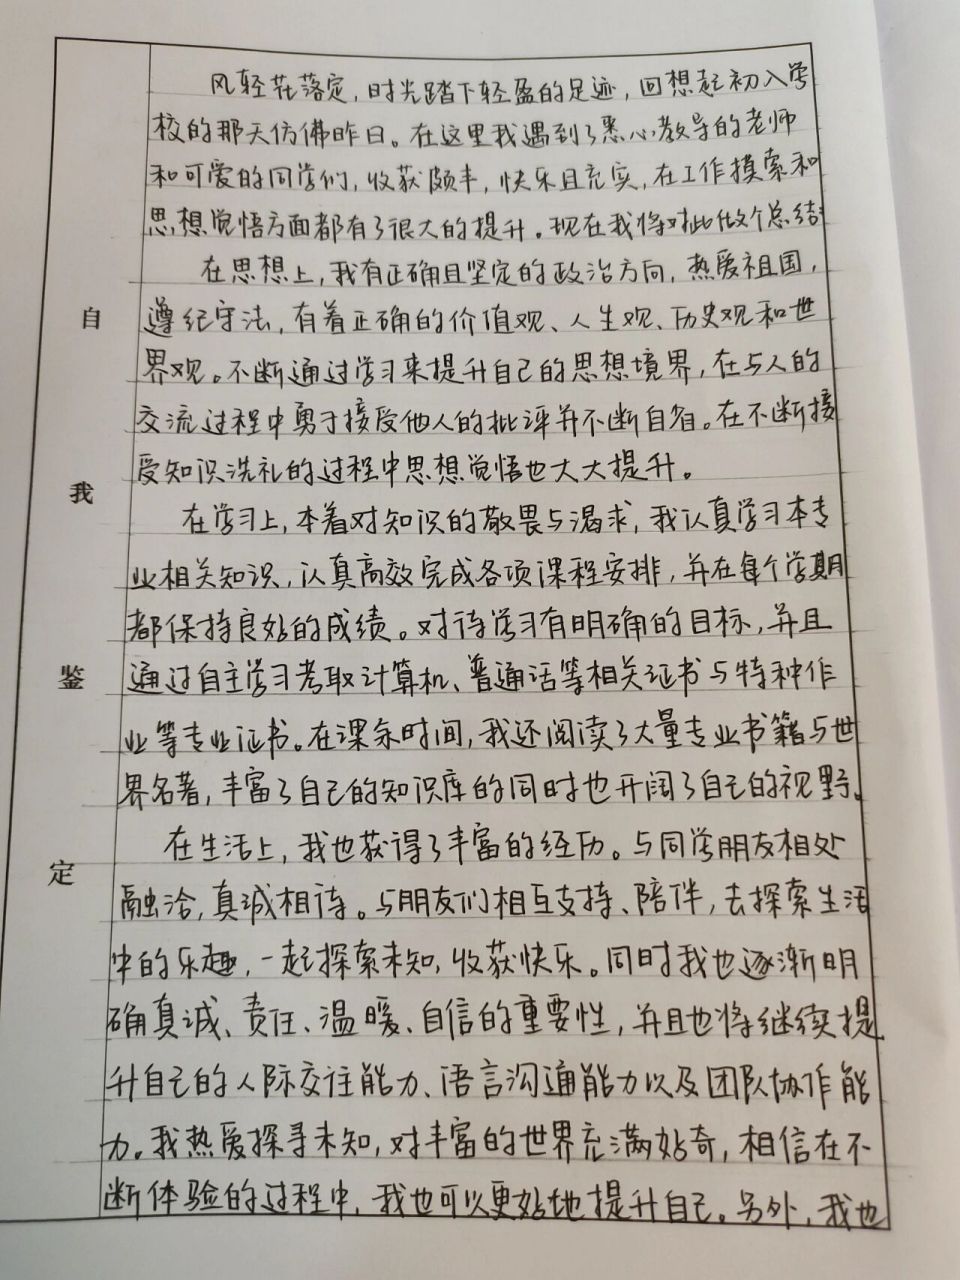 自我鉴定
风轻花落定，时光踏下轻盈的足迹，回想起初入学
校的那天仿佛昨日。在这里我遇到了悉心教导的老师
和可爱的同学们，收获颇丰，快乐且充实，在工作摸索和
思想觉悟方面都有了很大的提升。现在我将对此做个总结：
在思想上，我有正确且坚定的政治方向，热爱祖国，
遵纪守法，有着正确的价值观、人生观、历史观和世
界观。不断通过学习来提升自己的思想境界，在与人的
交流过程中勇于接受他人的批评并不断自省。在不断接
受知识洗礼的过程中思想觉悟也大大提升。
在学习上，本着对知识的敬畏与渴求，我认真学习本专
业相关知识，认真高效完成各项课程安排，并在每个学期
都保持良好的成绩。对待学习有明确的目标，并且
通过自主学习考取计算机、普通话等相关证书与特种作
业等专业证书。在课余时间，我还阅读了大量专业书籍与世
界名著，丰富了自己的知识库的同时也开阔了自己的视野。
在生活上，我也获得了丰富的经历。与同学朋友相处
融洽，真诚相待。与朋友们相互支持、陪伴，去探索生活
中的乐趣，一起探索未知，收获快乐。同时我也逐渐明
确真诚、责任、温暖、自信的重要性，并且也将继续提
升自己的人际交往能力、语言沟通能力以及团队协作能
力。我热爱探寻未知，对丰富的世界充满好奇，相信在不
断体验的过程中，我也可以更好地提升自己。另外，我也